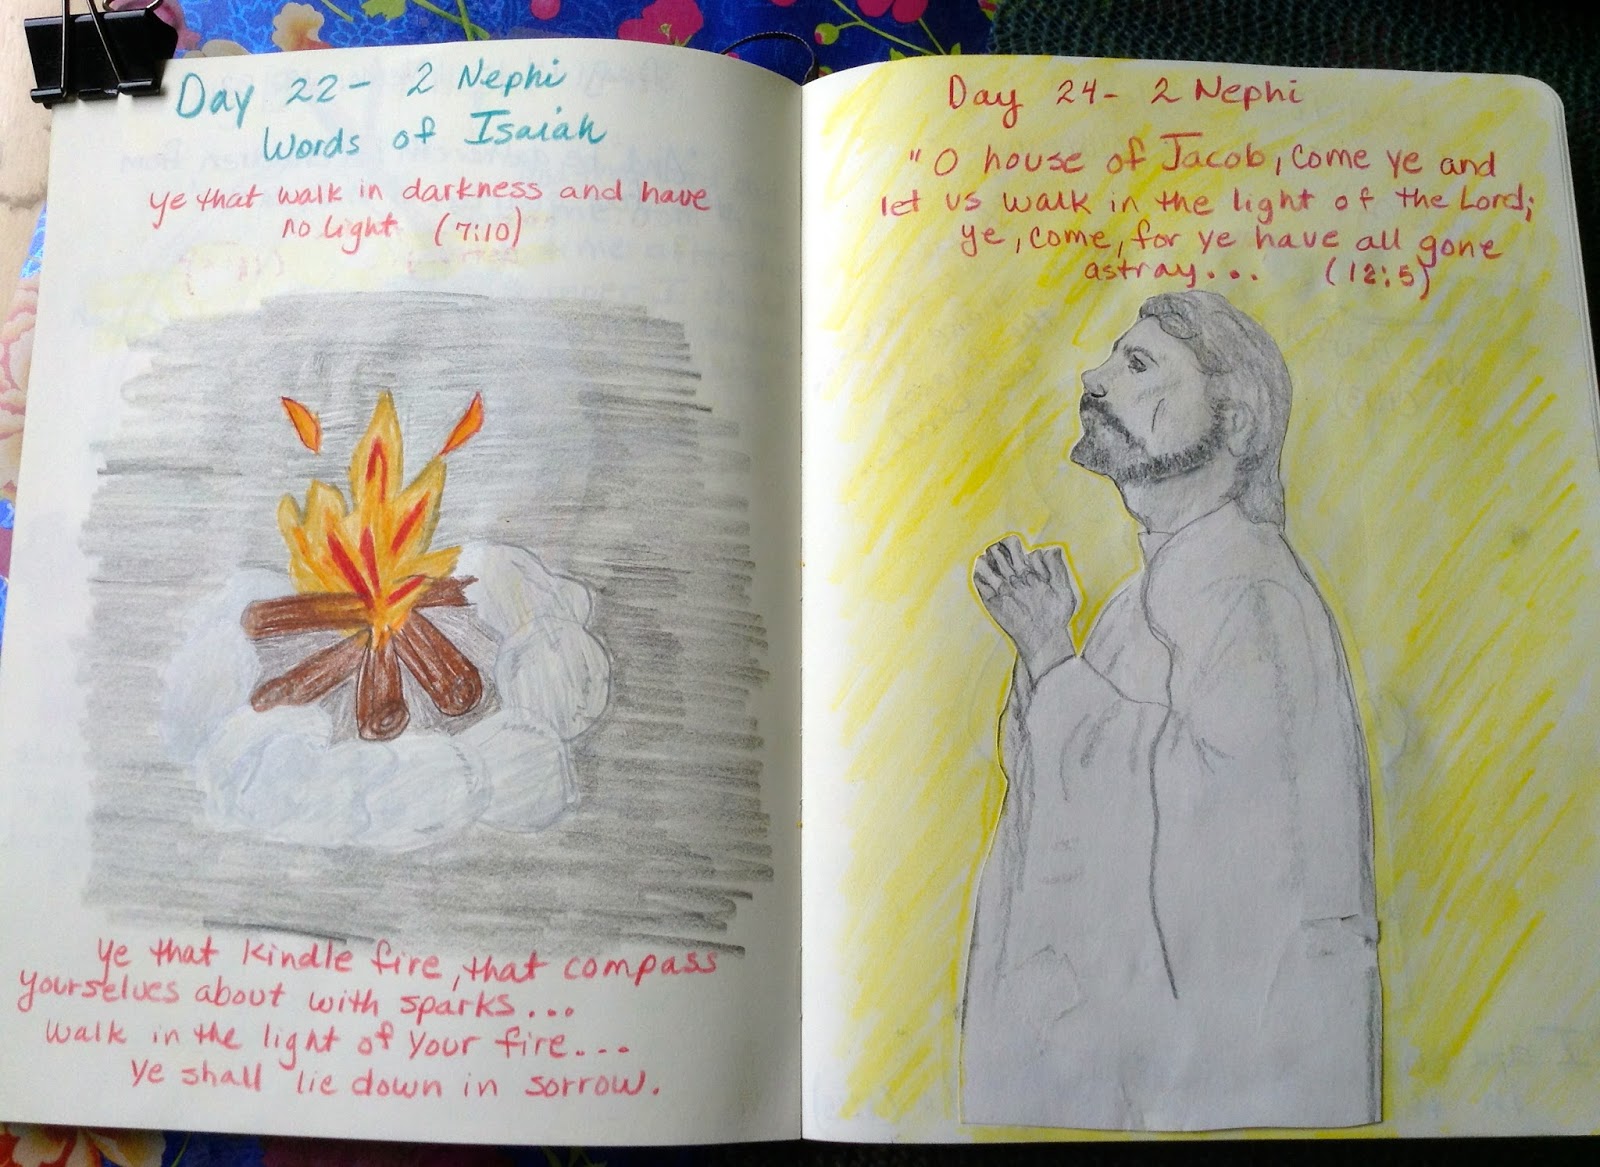 Day 22 - 2 Nephi
Words of Isaiah
ye that walk in darkness and have
no light (7:10)
ye that kindle fire, that compass
yourselves about with sparks...
walk in the light of your fire...
ye shall lie down in sorrow.
Day 24 - 2 Nephi
"O house of Jacob, come ye and
let us walk in the light of the Lord;
ye, come, for ye have all gone
astray... (12:5)